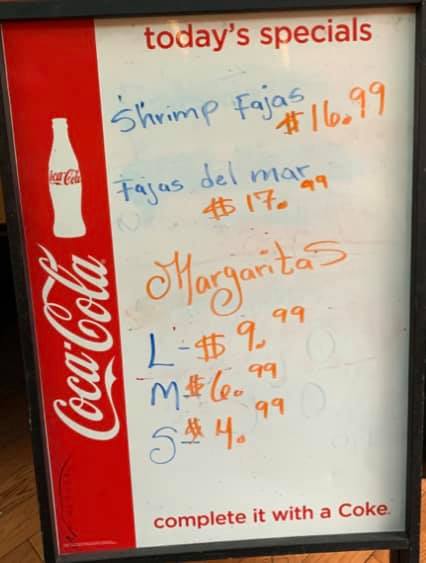 today's specials
Shrimp Fajas
$16.99
Fajas del mar
$17.99
Margaritas
L-$9.99
M-$6.99
S-$4.99
Coca-Cola
Coca-Cola
complete it with a Coke.